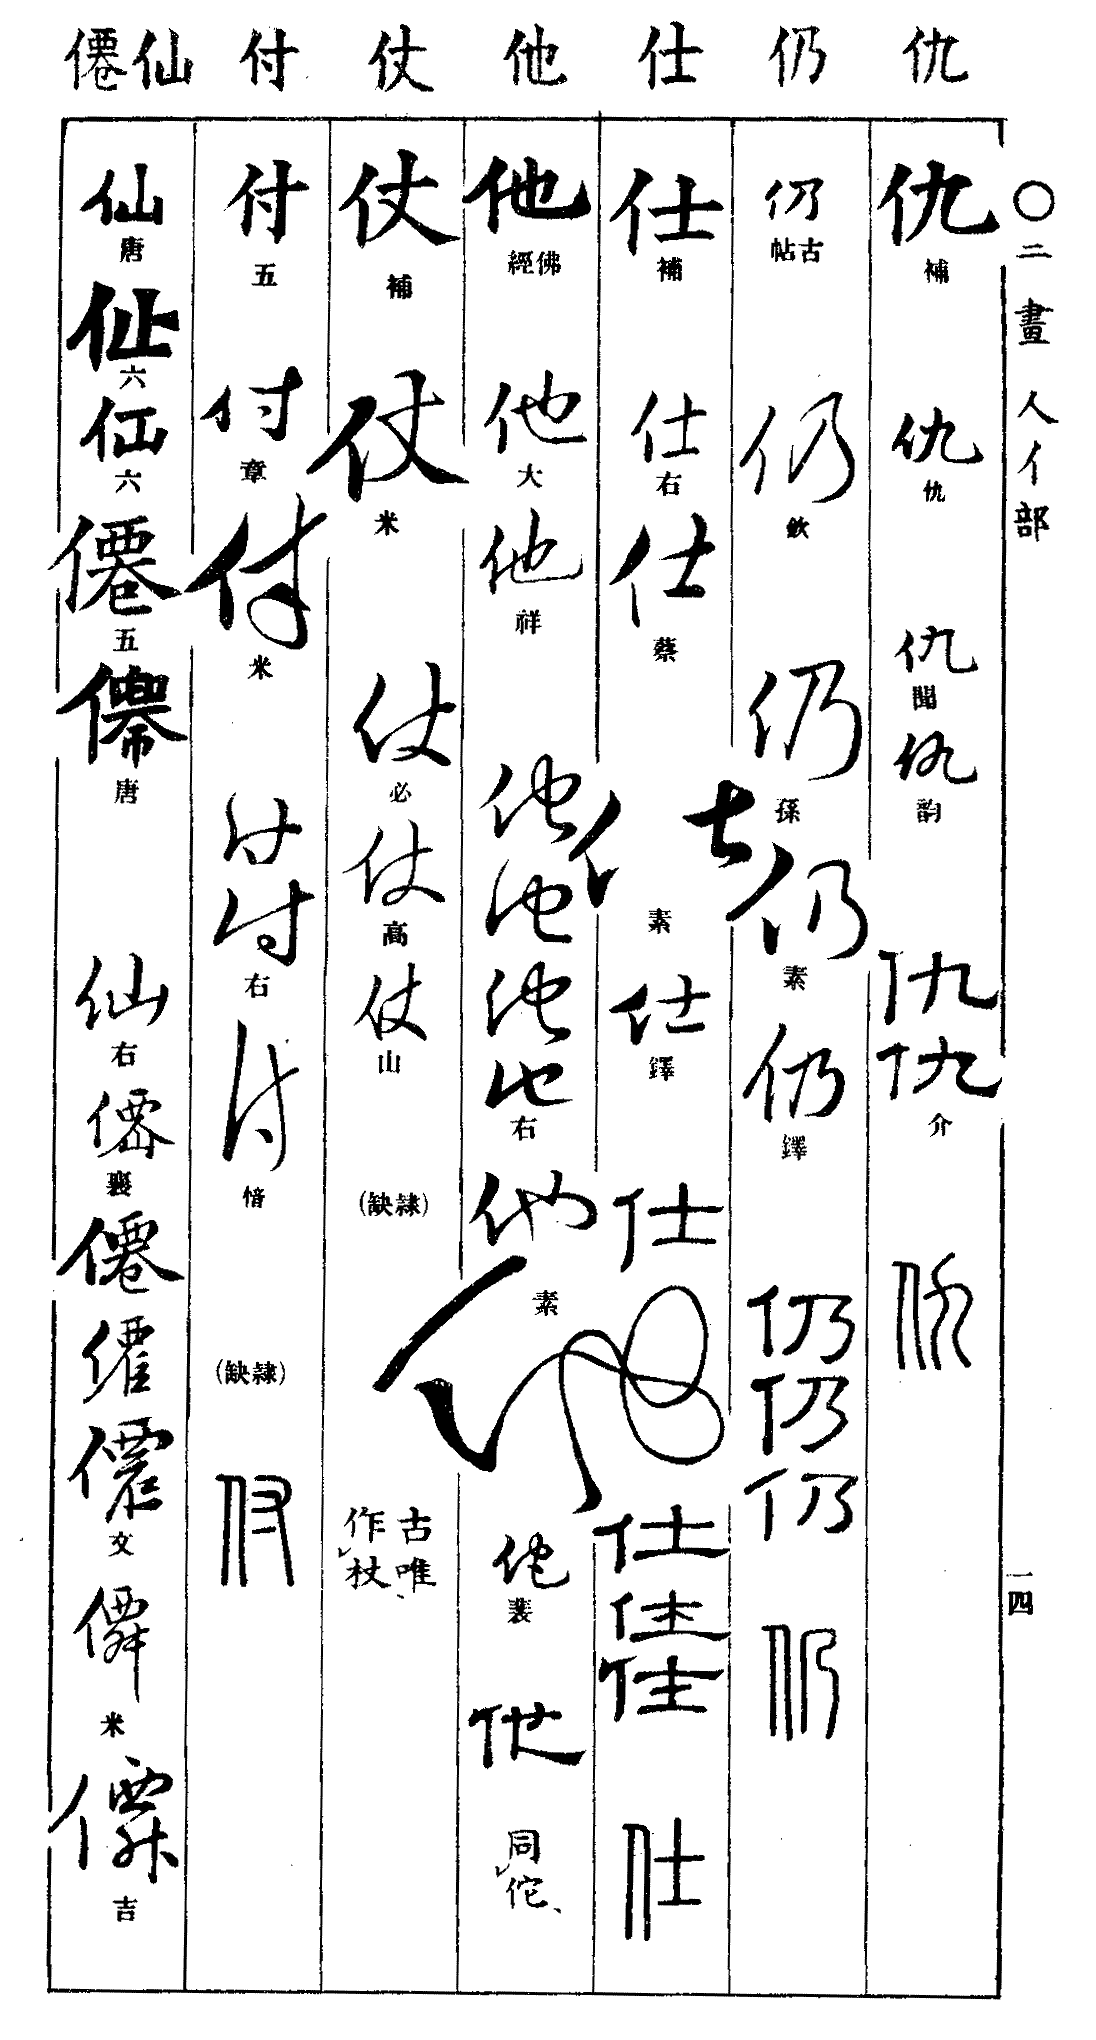 〇二畫 人亻部
一四
仇 仍 仕 他 仗 付 仙 僊
仇 補
仇 仇
仇 聞
仇 韵
仇
仇 介
仇
仍 古帖
仍 欽
仍 孫
仍 素
仍 鐸
仍
仍
仍
仍
仕 補
仕 右
仕 蔡
仕 素
仕 鐸
仕
仕
仕
仕
仕
他 佛經
他 大
他 祥
他
他
他
他 右
他
他 素
他 裴
他
同佗、
仗 補
仗 米
仗 必
仗 高
仗 山
(缺隸)
古唯作杖、
付 五
付 章
付 米
付
付 右
付 愔
(缺隸)
付
仙 唐
六
六
僊 五
唐
仙 右
僊 襄
僊
文
米
吉